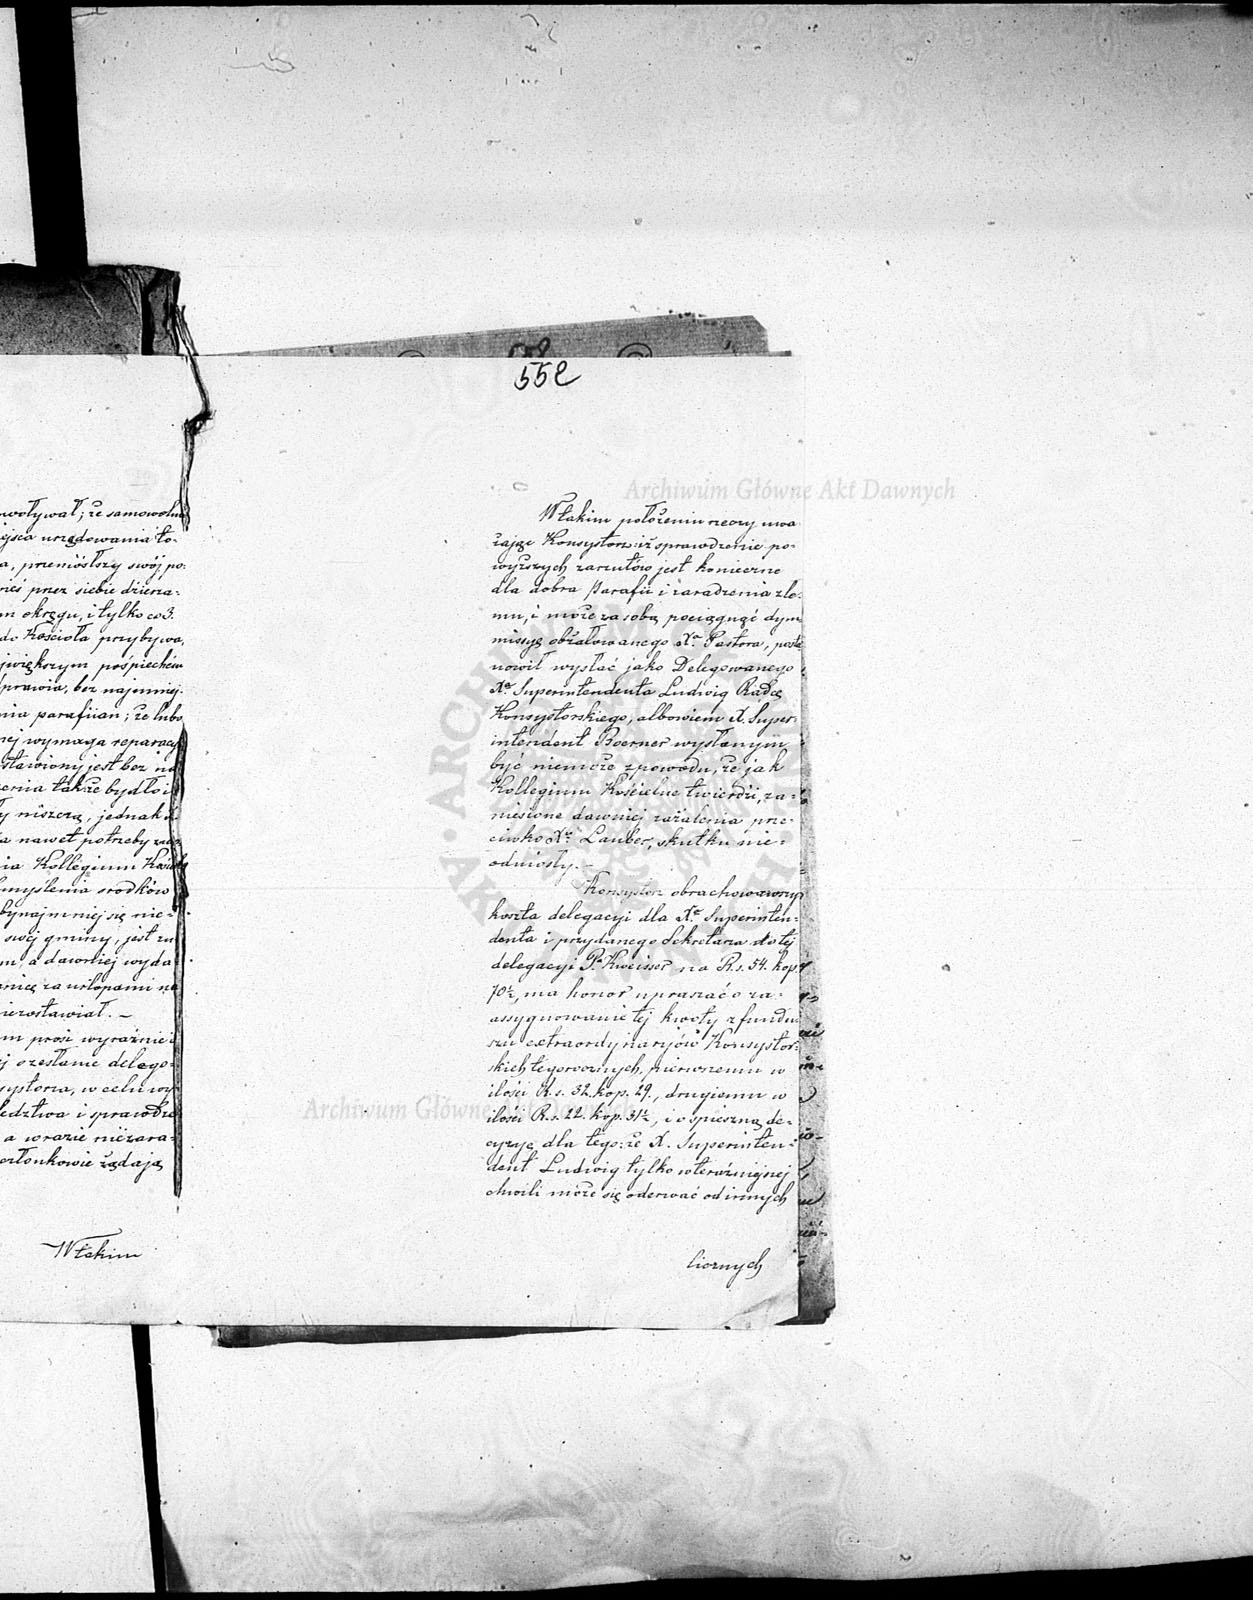 552
wływał; że samowolnie
jsca urzędowania to-
a, przeniósłszy swój po-
nieś przez siebie dzierża-
m okręgu, i tylko co 3.
do Kościoła przybywa,
jwiększym pośpiechem
prawia, bez najmniej-
nia parafiian; że lubo
nej wymaga reparacyi
stawiony jest bez na
zenia także bydło i
y niszczą, jednak
a nawet potrzeby
ia Kollegium Kościel
bmyślenia srodków
bynajmniej się nie-
swéj gminy, jest za
m, a dawniej wyda
nicę za urlopami na
niezostawiał. –
m prosi wyraźnie i
j zesłanie delego-
systorza, w celu wy-
ledztwa i sprawdze
a wrazie niezara-
członkowie żądają
Wtakim
Wtakim położeniu rzeczy uwa
żając Konsystorz: iż sprawdzenie po-
wyższych zarzutów jest konieczne
dla dobra Parafii i zaradzenia złe-
mu, i może za sobą pociągnąć dym
missyę obżałowanego Xa. Pastora, posta
nowił wysłać jako Delegowanego
Xa. Superintendenta Ludwig Radcę
Konsystorskiego, albowiem X. Super-
intendent Boerner wysłanym
być niemoże zpowodu, że jak
Kollegium Kościelne twierdzi, za-
niesione dawniej zażalenia prze-
ciwko Xu. Lauber, skutku nie-
odniosły. –
Konsystorz obrachowawszy
koszta delegacyi dla Xa. Superinten-
denta i przydanego Sekretarza do tej
delegacyi P. Kweisser na R.s. 54. kop.
70½, ma honor upraszać o za-
assygnowanie tej kwoty z fundu
szu extraordynaryjów Konsystor-
skich tegorocznych, pierwszemu w
ilości R.s. 32. kop. 29., drugiemu w
ilości R.s. 22. kop. 31½, i o spieszną de-
cyzyę dla tego: że X. Superinten-
dent Ludwig tylko wteraźniejszej
chwili może się oderwać od innych
licznych
Archiwum Główne Akt Dawnych
Archiwum Główne Akt Dawnych